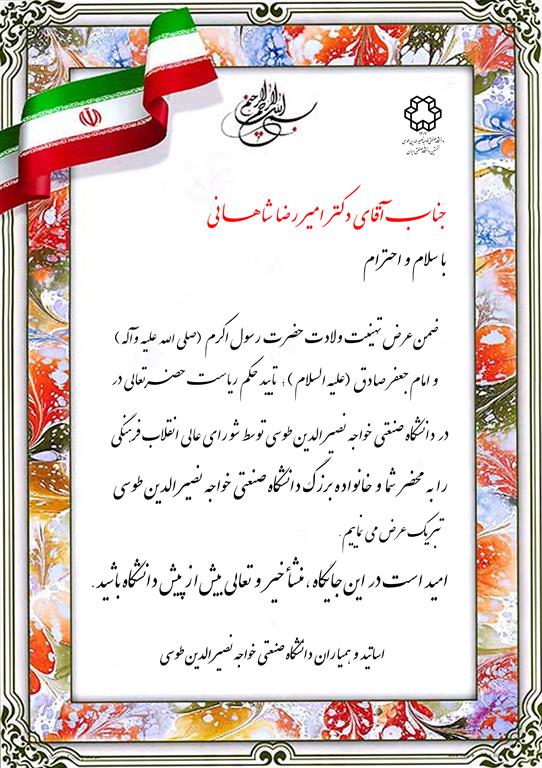 بسم الله الرحمن الرحیم
۱۳۰۷
دانشگاه صنعتی خواجه نصیرالدین طوسی
جناب آقای دکتر امیر رضا شاهانی
با سلام و احترام
ضمن عرض تهنیت ولادت حضرت رسول اکرم (صلی الله علیه وآله)
و امام جعفر صادق (علیه السلام)؛ تایید حکم ریاست حضرتعالی در
در دانشگاه صنعتی خواجه نصیرالدین طوسی توسط شورای عالی انقلاب فرهنگی
را به محضر شما و خانواده بزرگ دانشگاه صنعتی خواجه نصیرالدین طوسی
تبریک عرض می نماییم.
امید است در این جایگاه، منشأ خیر و تعالی بیش از پیش دانشگاه باشید.
اساتید و همیاران دانشگاه صنعتی خواجه نصیرالدین طوسی